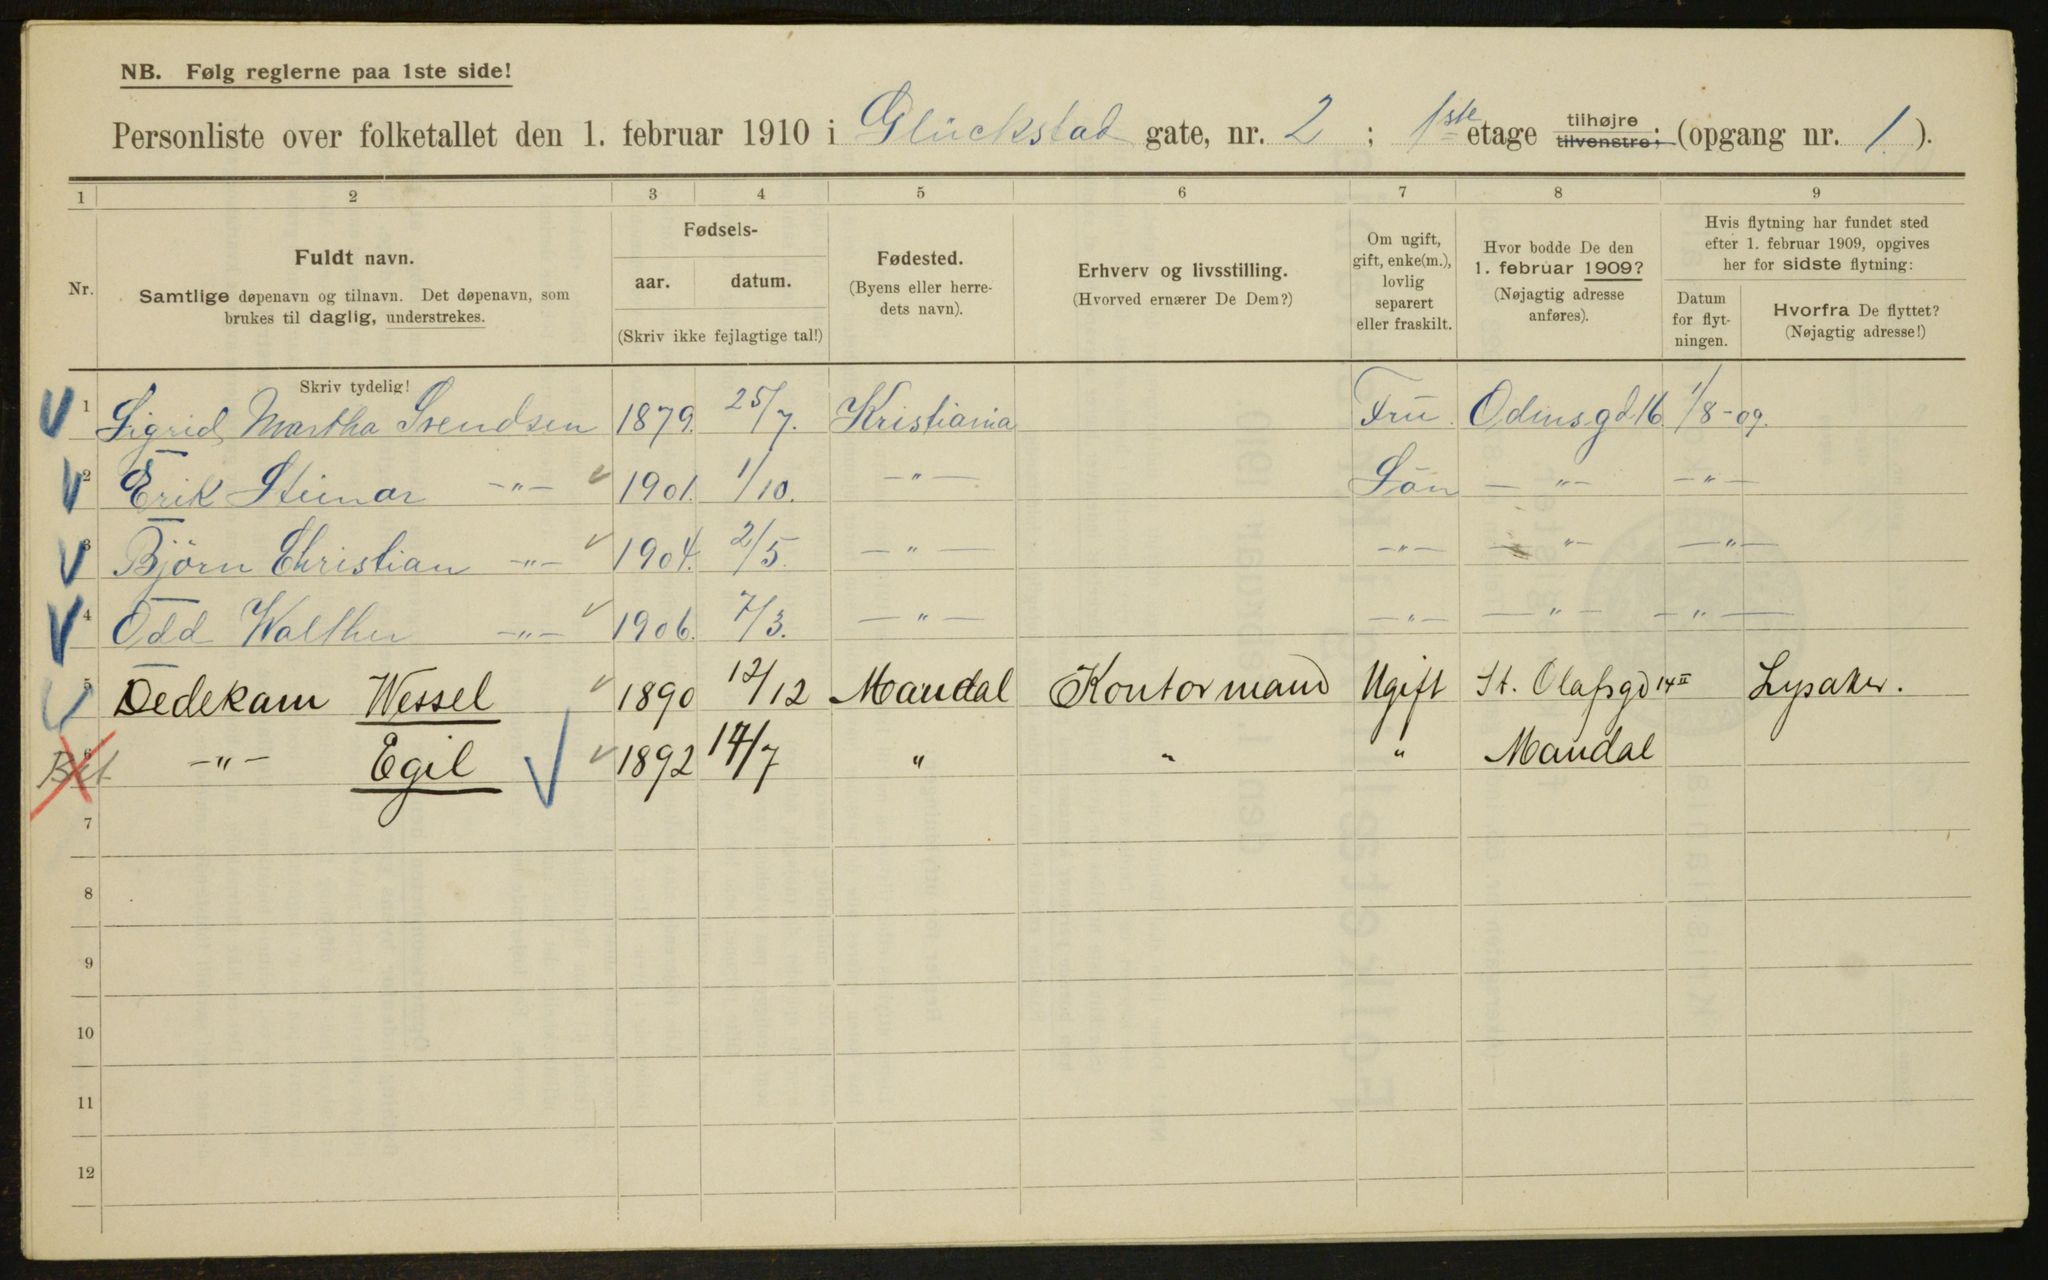 NB. Følg reglerne paa 1ste side!
Personliste over folketallet den 1. februar 1910 i Glückstad gate, nr. 2 ; 1ste etage tilhøjre tilvenstre; (opgang nr. 1 ).
1 2 3 4 5 6 7 8 9
Nr.
Fuldt navn.
Samtlige døpenavn og tilnavn. Det døpenavn, som
brukes til daglig, understrekes.
Skriv tydelig!
Fødsels-
aar. datum.
(Skriv ikke fejlagtige tal!)
Fødested.
(Byens eller herre-
dets navn).
Erhverv og livsstilling.
(Hvorved ernærer De Dem?)
Om ugift,
gift, enke(m.),
lovlig
separert
eller fraskilt.
Hvor bodde De den
1. februar 1909?
(Nøjagtig adresse
anføres).
Hvis flytning har fundet sted
efter 1. februar 1909, opgives
her for sidste flytning:
Datum
for flyt-
ningen.
Hvorfra De flyttet?
(Nøjagtig adresse!)
1 Sigrid Martha Svendsen 1879. 25/7. Kristiania Fru Odinsgd 16. 1/8-09.
2 Erik Steinar -"- 1901. 1/10. -"- Sön -"- -"-
3 Björn Christian -"- 1904. 2/5. -"- -"- -"- -"-
4 Odd Walther -"- 1906. 7/3. -"- -"- -"- -"-
5 Dedekam Wessel 1890 12/12 Mandal Kontormand Ugift St. Olafsgd 14 II Lysaker.
6 -"- Egil 1892 14/7 " " " Mandal
7
8
9
10
11
12